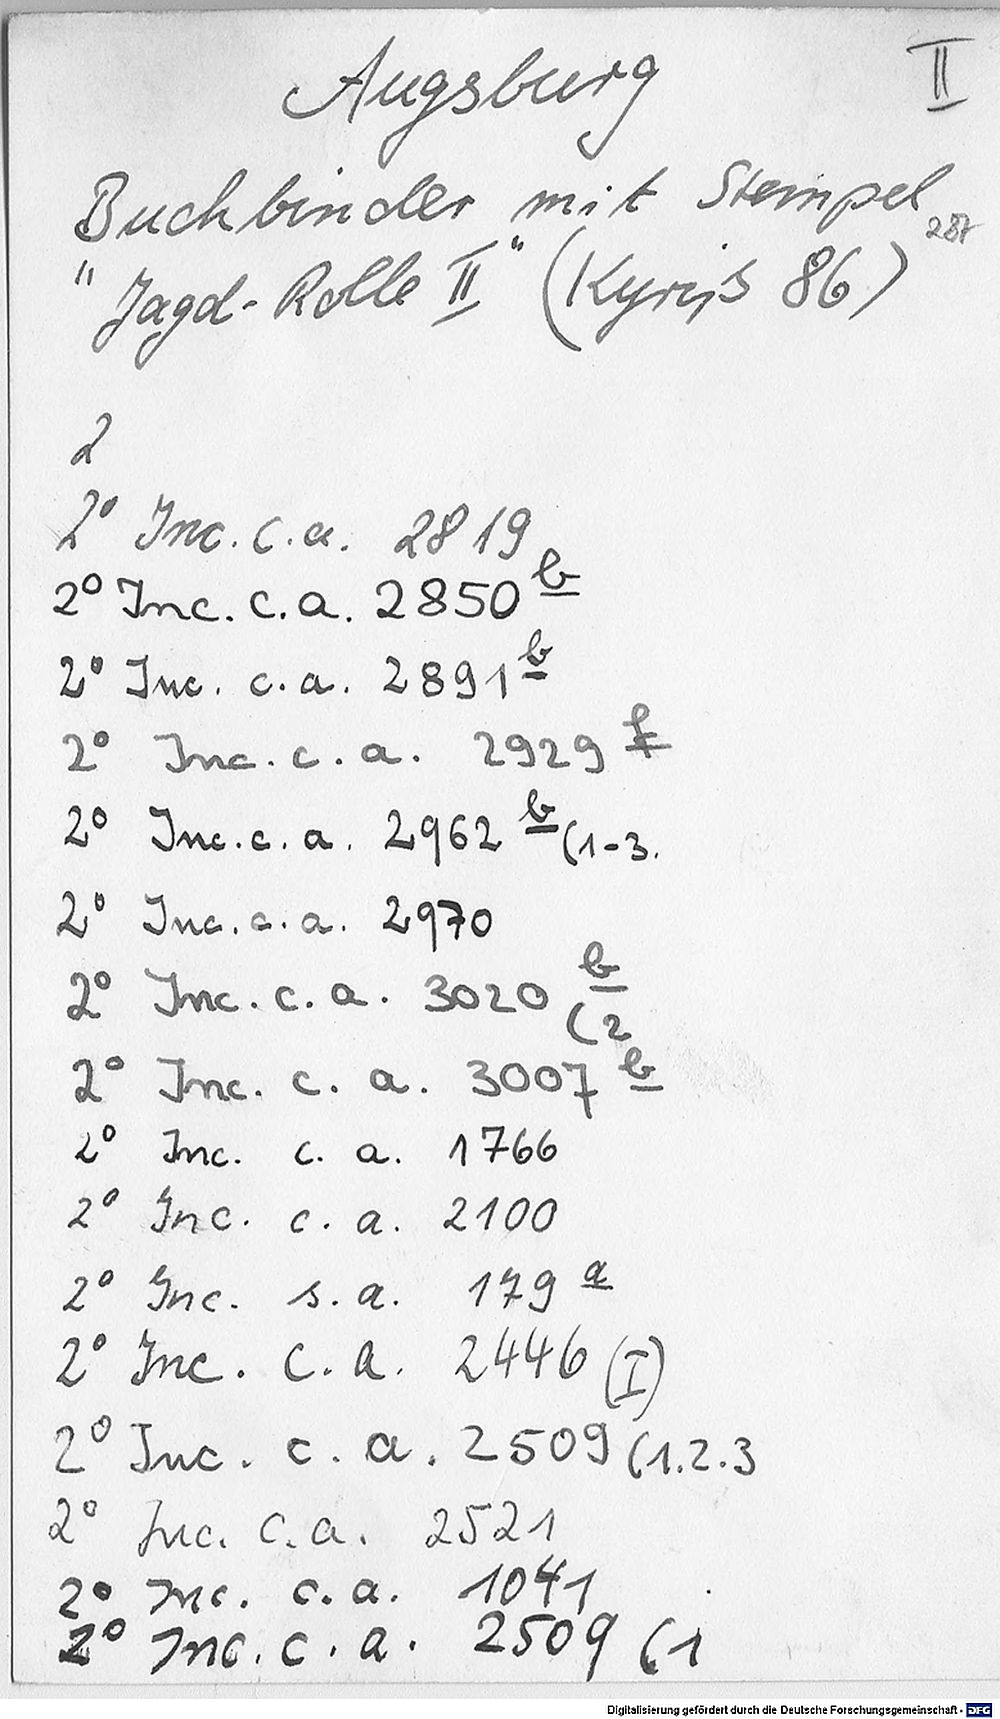 Augsburg II
Buchbinder mit Stempel 287
"Jagd-Rolle II" (Kyriß 86)
2
2° Inc. c. a. 2819
2° Inc. c. a. 2850 b
2° Inc. c. a. 2891 b
2° Inc. c. a. 2929 f
2° Inc. c. a. 2962 b (1-3.
2° Inc. c. a. 2970
2° Inc. c. a. 3020 b
(2
2° Inc. c. a. 3007 b
2° Inc. c. a. 1766
2° Inc. c. a. 2100
2° Inc. s. a. 179 a
2° Inc. c. a. 2446 (I)
2° Inc. c. a. 2509 (1.2.3
2° Inc. c. a. 2521
2° Inc. c. a. 1041
2° Inc. c. a. 2509 (1
Digitalisierung gefördert durch die Deutsche Forschungsgemeinschaft - DFG